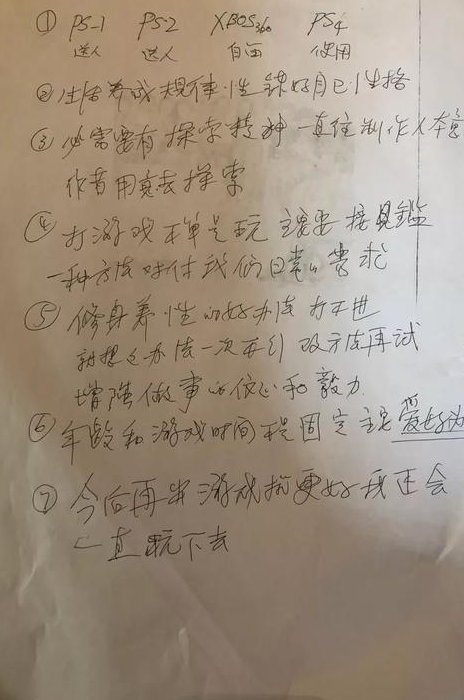 ① PS-1 PS-2 XBOS360 PS4
送人 送人 自西 使用
②生活养成规律性 锻好自己性格
③必需要有探索精神 一直往制作人本意
作者用意去探索
④打游戏不单是玩 主要接見鑑
一种方法对付我们日常的需求
⑤修身养性的好办法 打不进
就想之办法一次再引 改方法再试
增强做事的信心和毅力
⑥年龄和游戏时间不是固定主要爱好为
⑦今向再出游戏机更好我还会
一直玩下去